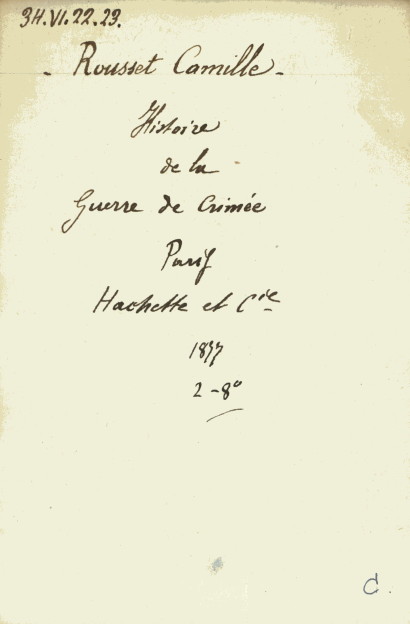 34.VI.22.23.
- Rousset Camille -
Histoire
de la
Guerre de Crimée
Paris
Hachette et Cie
1877
2 - 8°
C.